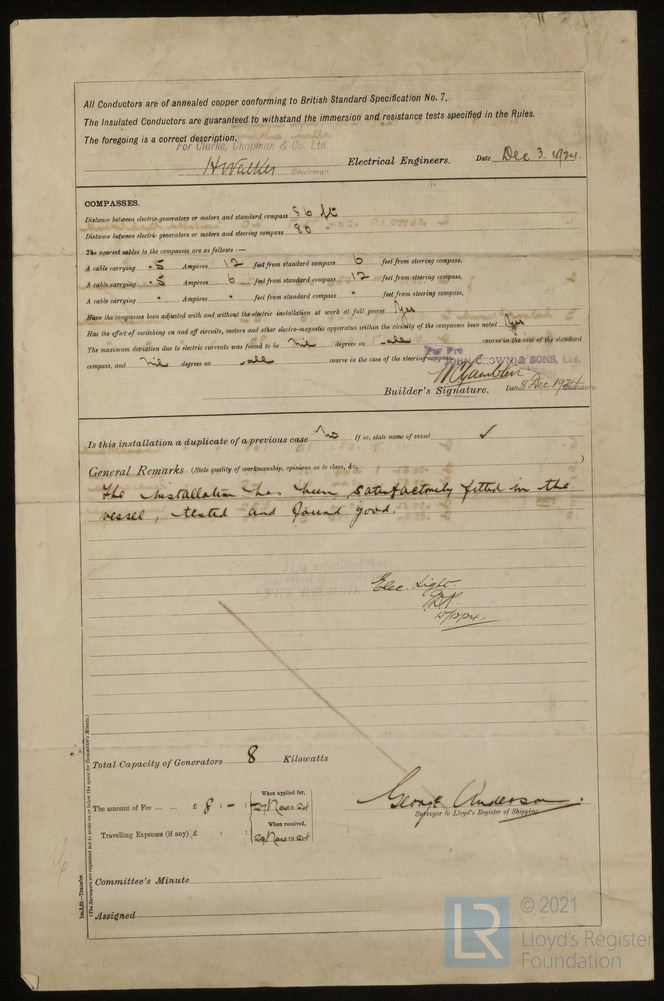 All Conductors are of annealed copper conforming to British Standard Specification No. 7.
The Insulated Conductors are guaranteed to withstand the immersion and resistance tests specified in the Rules.
The foregoing is a correct description.
For Clarke, Chapman & Co. Ltd.
H Walker Chairman Electrical Engineers. Date Dec 3. 1924.
COMPASSES.
Distance between electric generators or motors and standard compass 86 ft
Distance between electric generators or motors and steering compass 80 "
The nearest cables to the compasses are as follows:—
A cable carrying .5 Ampères 12 feet from standard compass 6 feet from steering compass.
A cable carrying .5 Ampères 6 feet from standard compass 12 feet from steering compass.
A cable carrying " Ampères " feet from standard compass " feet from steering compass.
Have the compasses been adjusted with and without the electric installation at work at full power Yes
Has the effect of switching on and off circuits, motors and other electro-magnetic apparatus within the vicinity of the compasses been noted Yes
The maximum deviation due to electric currents was found to be Nil degrees on all course in the case of the standard
compass, and Nil degrees on all course in the case of the steering compass.
For Pro
JOHN CROWN & SONS, Ltd.
Builder's Signature. Date 8 Dec 1924
Is this installation a duplicate of a previous case No If so, state name of vessel ✓
General Remarks (State quality of workmanship, opinions as to class, &c. )
The installation has been satisfactorily fitted in the
vessel, tested and found good.
Elec. Light.
15/12/24
Total Capacity of Generators 8 Kilowatts
The amount of Fee ... ... £ 8 : - : When applied for, 27 Nov 19.24
Travelling Expenses (if any) £ : : When received, 29 Nov 19.24
George Anderson.
Surveyor to Lloyd's Register of Shipping
Committee's Minute
Assigned
(The Surveyors are requested not to write on or below the space for Committee's Minute.)
© 2021
LR Lloyd's Register
Foundation